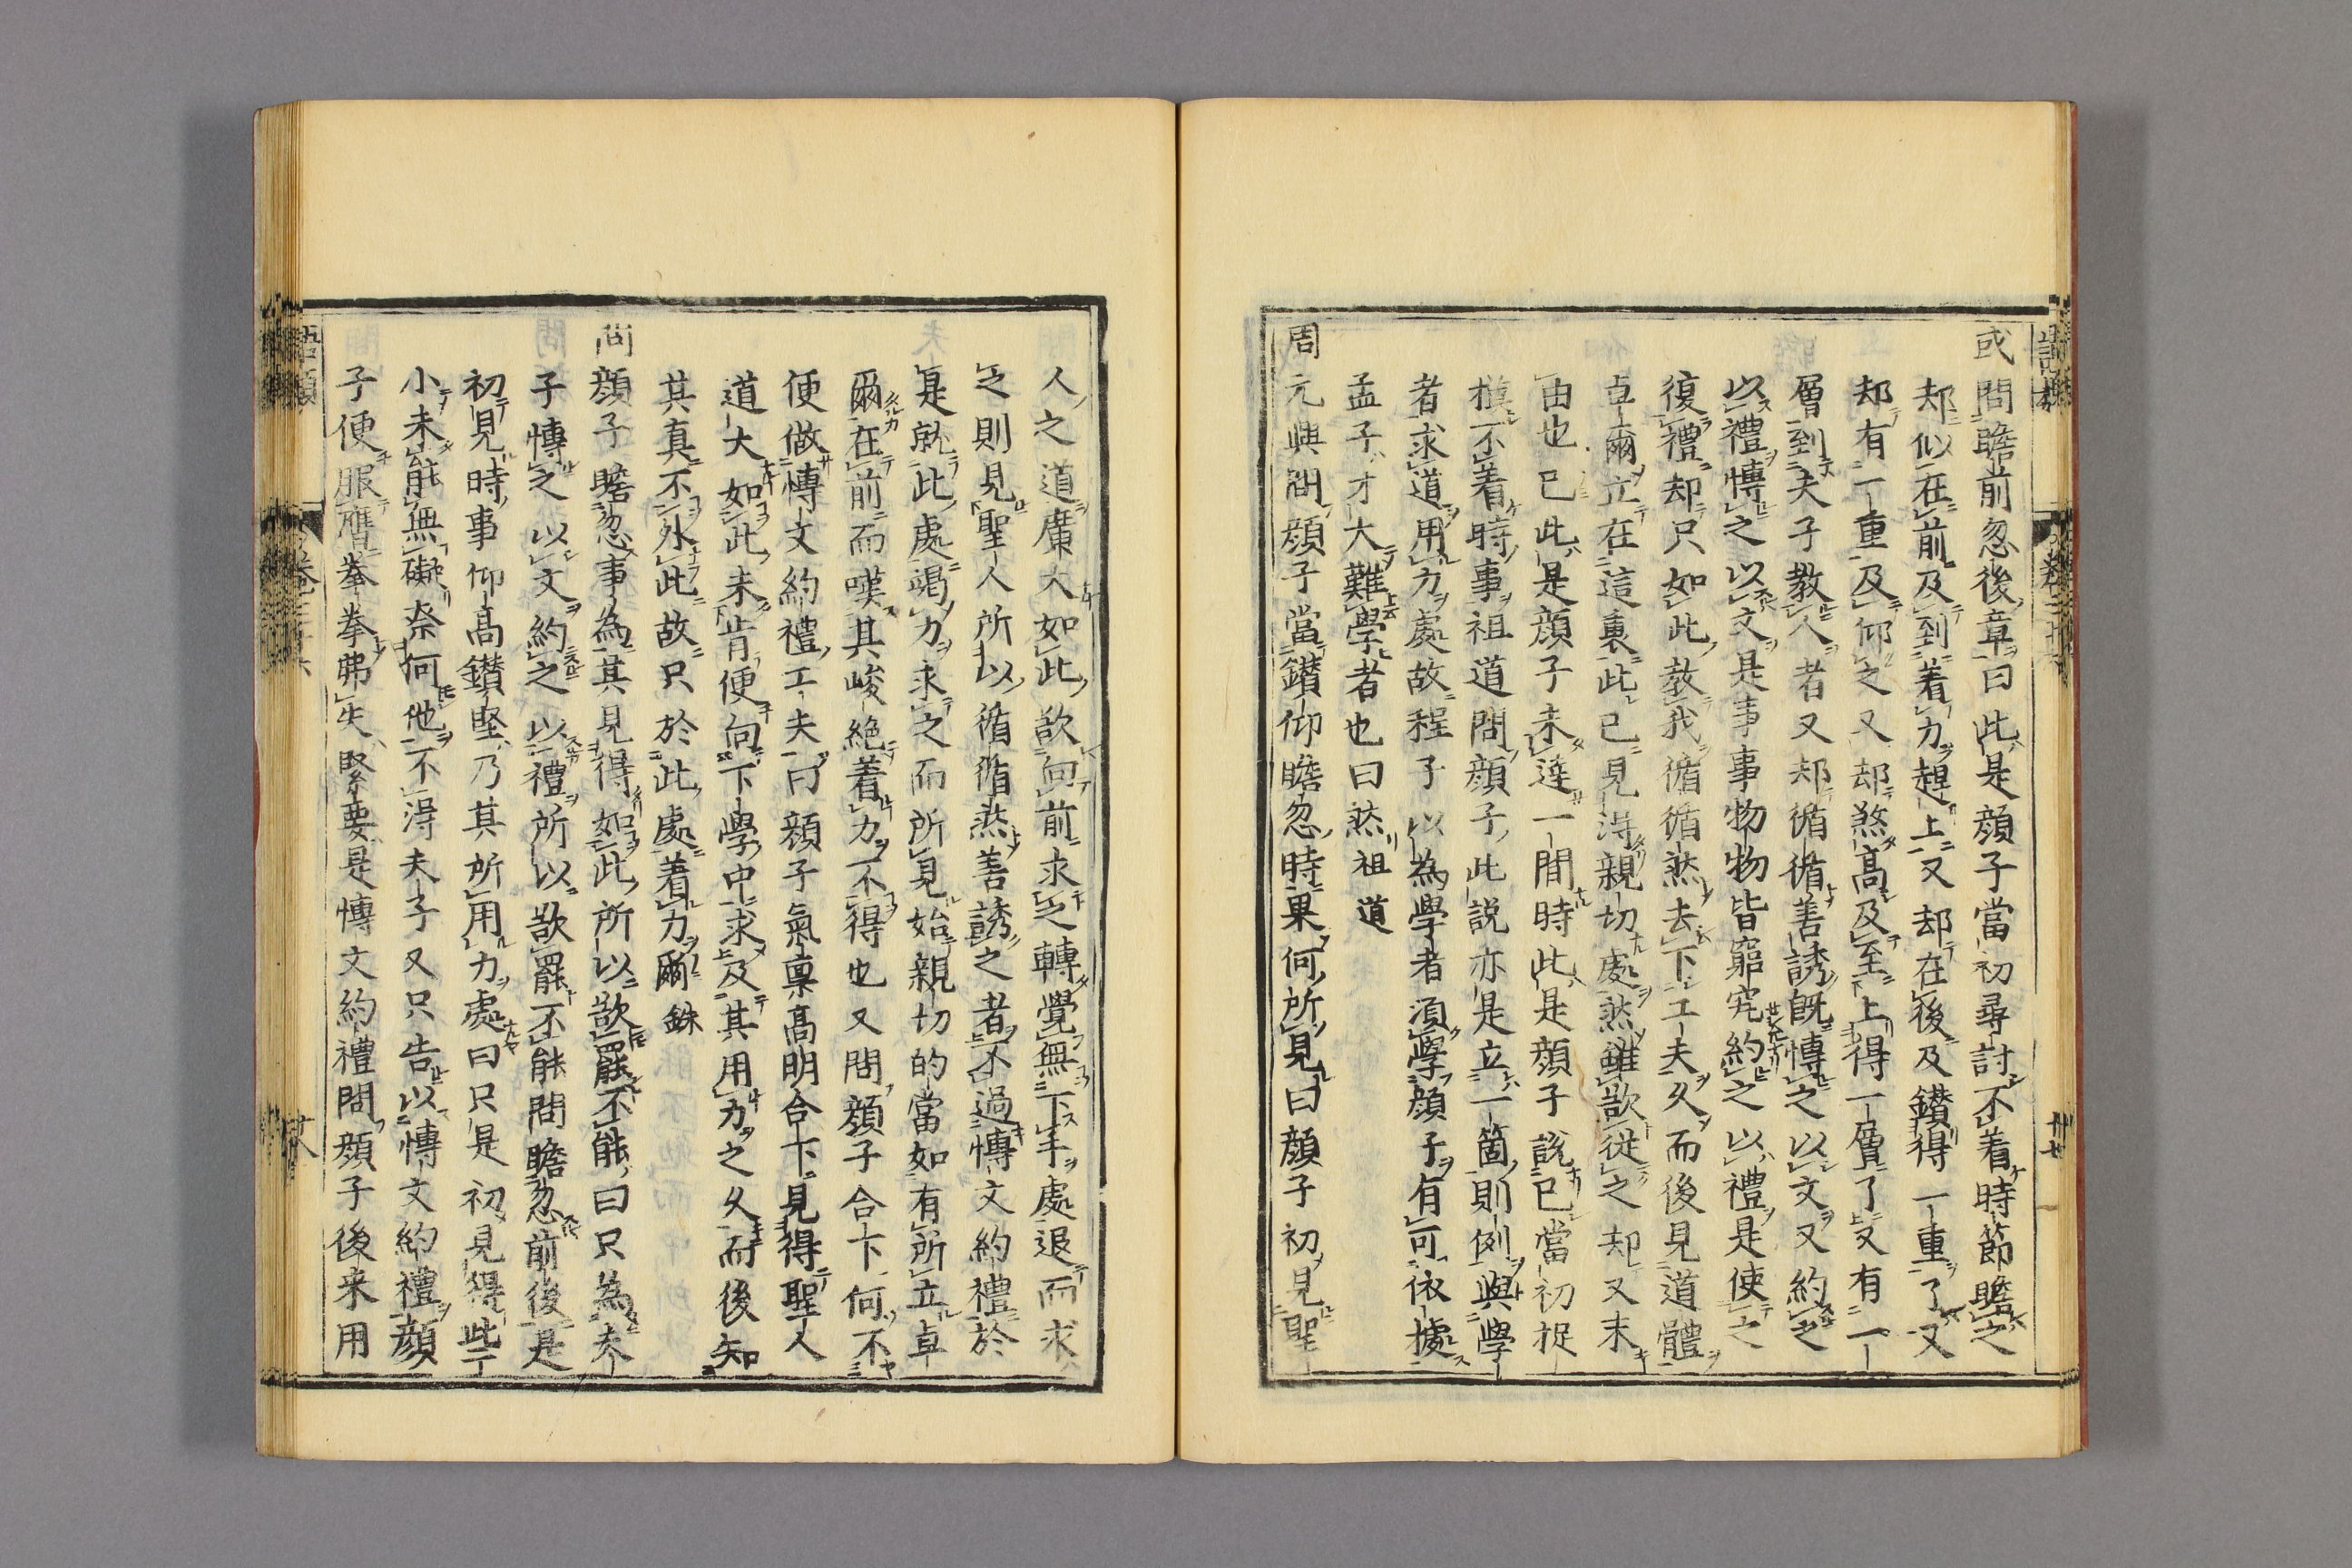 或問瞻前忽後章曰此是顔子當初尋討不着時節瞻之
却似在前及到着力趕上又却在後及鑚得一重了又
却有一重及仰之又却煞高及至上得一層了又有一
層到夫子教人者又却循循善誘既慱之以文又約之
以禮慱之以文是事事物物皆窮究約之以禮是使之
復禮却只如此教我循循然去下工夫久而後見道體
卓爾立在這裏此已見淂親切處然雖欲從之却又未
由也已此是顔子未達一間時此是顔子說已當初捉
摸不着時事祖道問顔子此説亦是立一箇則例與學
者求道用力處故程子以為學者湏學顔子有可依據
孟子才大難學者也曰然祖道
周元興問顔子當鑚仰瞻忽時果何所見曰顔子初見聖
人之道廣大如此欲向前求之轉覺無下手處退而求
之則見聖人所以循循然善誘之者不過慱文約禮於
是就此處竭力求之而所見始親切的當如有所立卓
爾在前而嘆其峻絶着力不得也又問顔子合下何不
便做慱文約禮工夫曰顔子氣禀高明合下見得聖人
道大如此未肯便向下學中求及其用力之久而後知
其真不外此故只於此處着力爾銖
問顔子瞻忽事為其見得如此所以欲罷不能曰只為夫
子慱之以文約之以禮所以欲罷不能問瞻忽前後是
初見時事仰高鑚堅乃其所用力處曰只是初見得些
小未能無礙柰何他不淂夫子又只告以慱文約禮顔
子便服膺拳拳弗失緊要是慱文約禮問顔子後来用